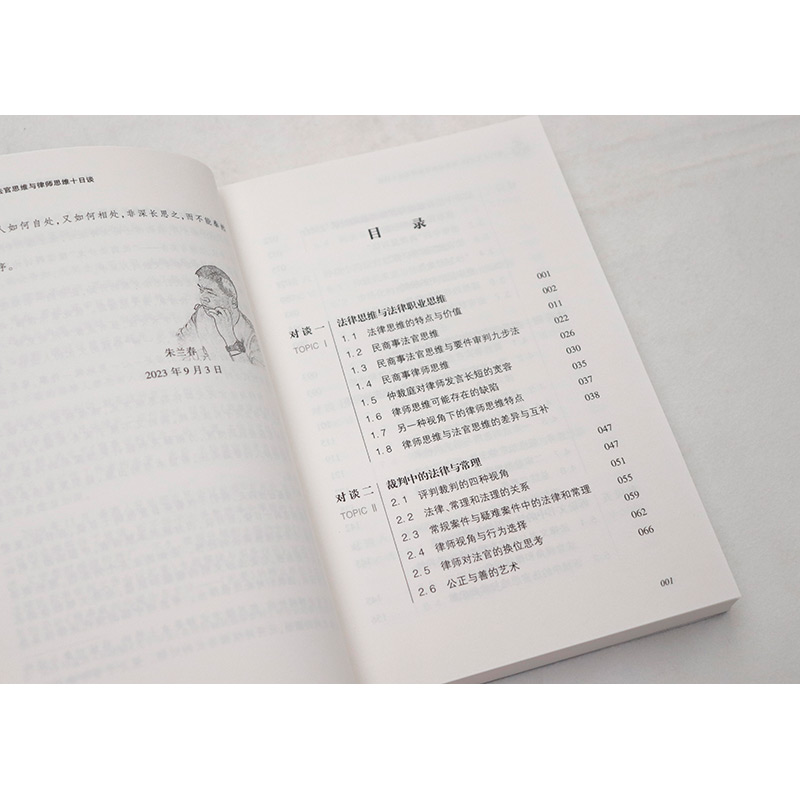 法官思维与律师思维十日谈
人如何自处，又如何相处，非深长思之，而不能
序。
朱兰春
2023 年 9 月 3 日
目 录
对谈一 法律思维与法律职业思维 001
TOPIC Ⅰ 1.1 法律思维的特点与价值 002
1.2 民商事法官思维 011
1.3 民商事法官思维与要件审判九步法 022
1.4 民商事律师思维 026
1.5 仲裁庭对律师发言长短的宽容 030
1.6 律师思维可能存在的缺陷 035
1.7 另一种视角下的律师思维特点 037
1.8 律师思维与法官思维的差异与互补 038
对谈二 裁判中的法律与常理 047
TOPIC Ⅱ 2.1 评判裁判的四种视角 047
2.2 法律、常理和法理的关系 051
2.3 常规案件与疑难案件中的法律和常理 055
2.4 律师视角与行为选择 059
2.5 律师对法官的换位思考 062
2.6 公正与善的艺术 066
001